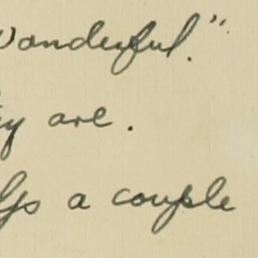 wonderful."
are.
a couple